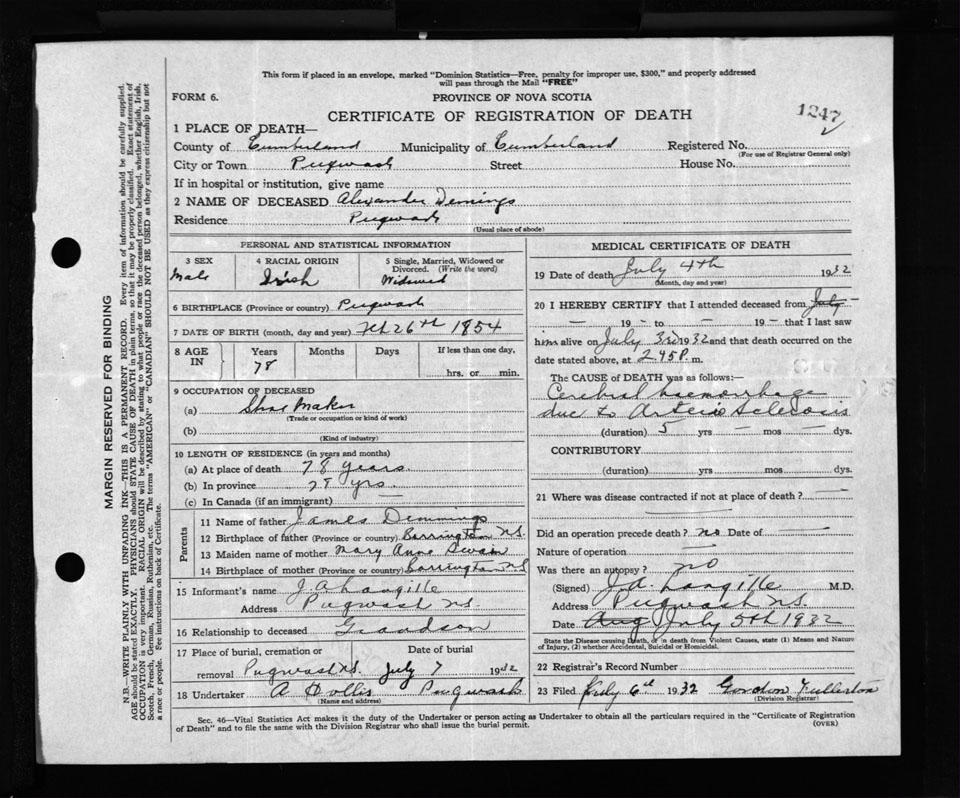 This form if placed in an envelope, marked "Dominion Statistics—Free, penalty for improper use, $300," and properly addressed
will pass through the Mail "FREE"
FORM 6.
PROVINCE OF NOVA SCOTIA
1247
CERTIFICATE OF REGISTRATION OF DEATH
1 PLACE OF DEATH—
County of Cumberland Municipality of Cumberland Registered No.
(For use of Registrar General only)
City or Town Pugwash Street House No.
If in hospital or institution, give name
2 NAME OF DECEASED Alexander Demings
Residence Pugwash
(Usual place of abode)
PERSONAL AND STATISTICAL INFORMATION
3 SEX 4 RACIAL ORIGIN 5 Single, Married, Widowed or
Divorced. (Write the word)
Male Irish Widowed
6 BIRTHPLACE (Province or country) Pugwash
7 DATE OF BIRTH (month, day and year) Feb 26th 1854
8 AGE IN Years Months Days If less than one day,
78 hrs. or min.
9 OCCUPATION OF DECEASED
(a) Shoe Maker
(Trade or occupation or kind of work)
(b)
(Kind of industry)
10 LENGTH OF RESIDENCE (in years and months)
(a) At place of death 78 years
(b) In province 78 yrs.
(c) In Canada (if an immigrant) —
Parents
11 Name of father James Demmings
12 Birthplace of father (Province or country) Barrington N.S.
13 Maiden name of mother Mary Anne Swain
14 Birthplace of mother (Province or country) Barrington N.S
15 Informant's name J A Langille
Address Pugwash N.S.
16 Relationship to deceased Grandson
17 Place of burial, cremation or Date of burial
removal Pugwash N.S. July 7 1932
18 Undertaker A Hollis Pugwash
(Name and address)
MEDICAL CERTIFICATE OF DEATH
19 Date of death July 4th 1932
(Month, day and year)
20 I HEREBY CERTIFY that I attended deceased from July —
— 19 — to — 19 — that I last saw
him alive on July 3rd 1932 and that death occurred on the
date stated above, at 2 45 P. m.
The CAUSE OF DEATH was as follows:—
Cerebral haemorrhage
due to Arterio Sclerosis
(duration) 5 yrs — mos — dys.
CONTRIBUTORY
(duration) yrs. mos. dys.
21 Where was disease contracted if not at place of death? —
—
Did an operation precede death? no Date of —
Nature of operation —
Was there an autopsy? no
(Signed) J.A. Langille M.D.
Address Pugwash N.S.
Date Aug July 5th 1932
State the Disease causing Death, or in death from Violent Causes, state (1) Means and Nature
of Injury, (2) whether Accidental, Suicidal or Homicidal.
22 Registrar's Record Number
23 Filed July 6th 1932 Gordon Fullerton
(Division Registrar)
Sec. 46—Vital Statistics Act makes it the duty of the Undertaker or person acting as Undertaker to obtain all the particulars required in the "Certificate of Registration
of Death" and to file the same with the Division Registrar who shall issue the burial permit. (OVER)
MARGIN RESERVED FOR BINDING
N.B.—WRITE PLAINLY WITH UNFADING INK—THIS IS A PERMANENT RECORD. Every item of information should be carefully supplied.
AGE should be stated EXACTLY. PHYSICIANS should STATE CAUSE OF DEATH in plain terms, so that it may be properly classified. Exact statement of
OCCUPATION is very important. RACIAL ORIGIN will be described by stating to what people or race the deceased person belonged, whether English, Irish,
Scotch, French, German, Russian, Ruthenian, etc. The terms "AMERICAN" or "CANADIAN" SHOULD NOT BE USED as they express citizenship but not
a race or people. Fee instructions on back of Certificate.